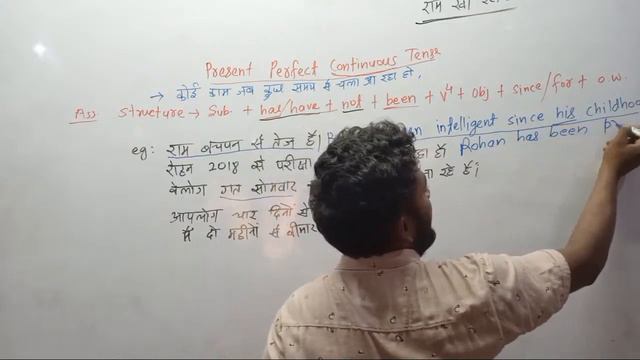 राम
Present Perfect Continuous Tense
→ कोई काम जब कुछ समय से चला आ रहा हो,
Ass. Structure → Sub. + has/have + not + been + V⁴ + obj + since/for + o.w.
eg: राम बचपन से तेज है। intelligent since his childhood
रोहन 2018 से परीक्षा रहा है। Rohan has been
वेलोग गत सोमवार रहे हैं।
आपलोग चार दिनों से
मैं दो महीनों से बीमार